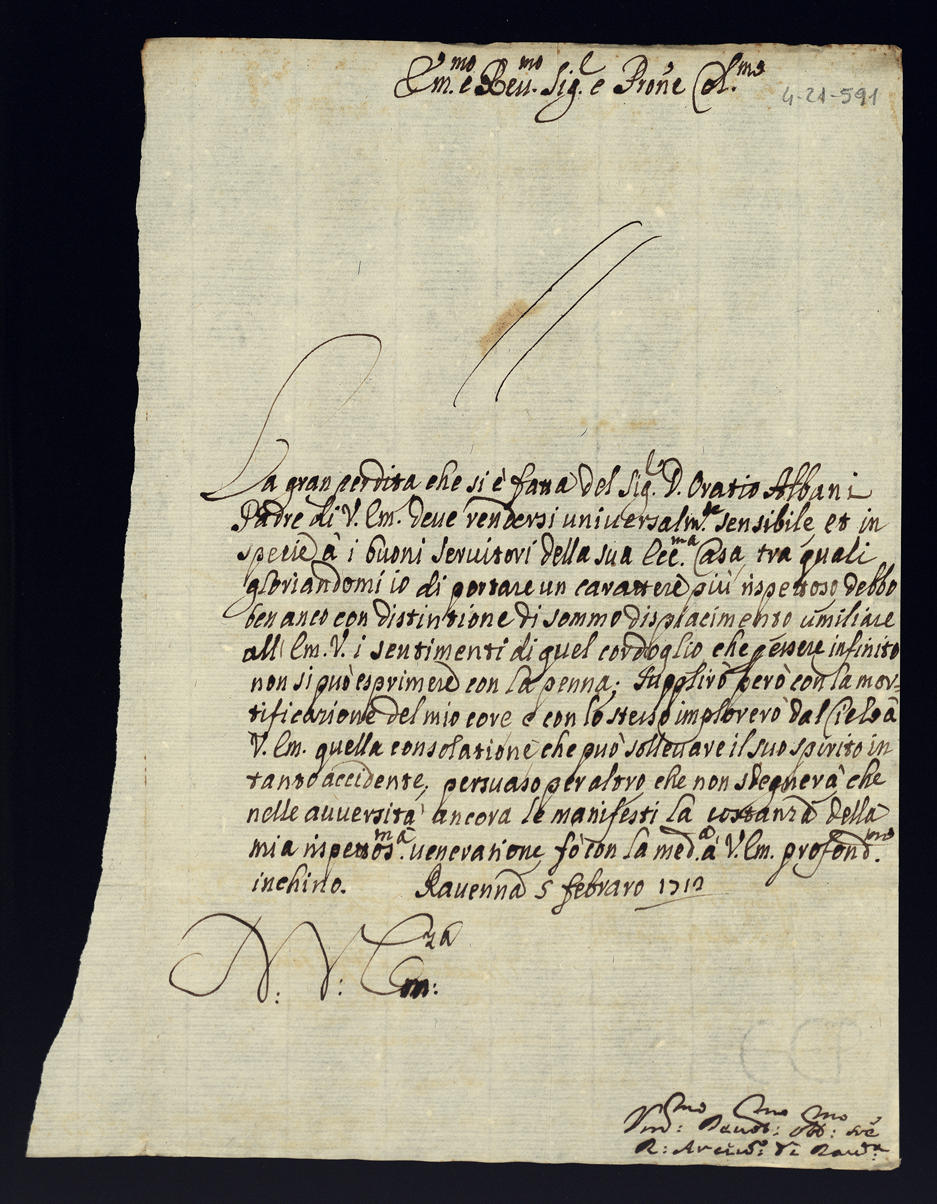 Em.mo e Reu.mo Sig.e e Pron̄e Col.mo
4-21-591
La gran perdita che si è fatta del Sig.le D. Oratio Albani
Padre di V. Em. deve rendersi universalm.te sensibile, et in
specie à i buoni servitori della sua Ecc.ma Casa, tra quali
gloriandomi io di portare un carattere più rispettoso debbo
ben anco con distintione di sommo displacimento umiliare
all'Em. V. i sentimenti di quel cordoglio che p essere infinito
non si può esprimere con la penna; supplirò però con la mor-
tificazione del mio core e con lo stesso implorerò dal Cielo à
V. Em. quella consolatione che può sollevare il suo spirito in
tanto accidente, persuaso per altro che non sdegnerà che
nelle auuersità ancora le manifesti la costanza della
mia rispettos.ma ueneratione, fò con la med.a à V. Em. profond.mo
inchino. Ravenna 5 febraro 1712
D. V. Em.za
Deuot. Obb.